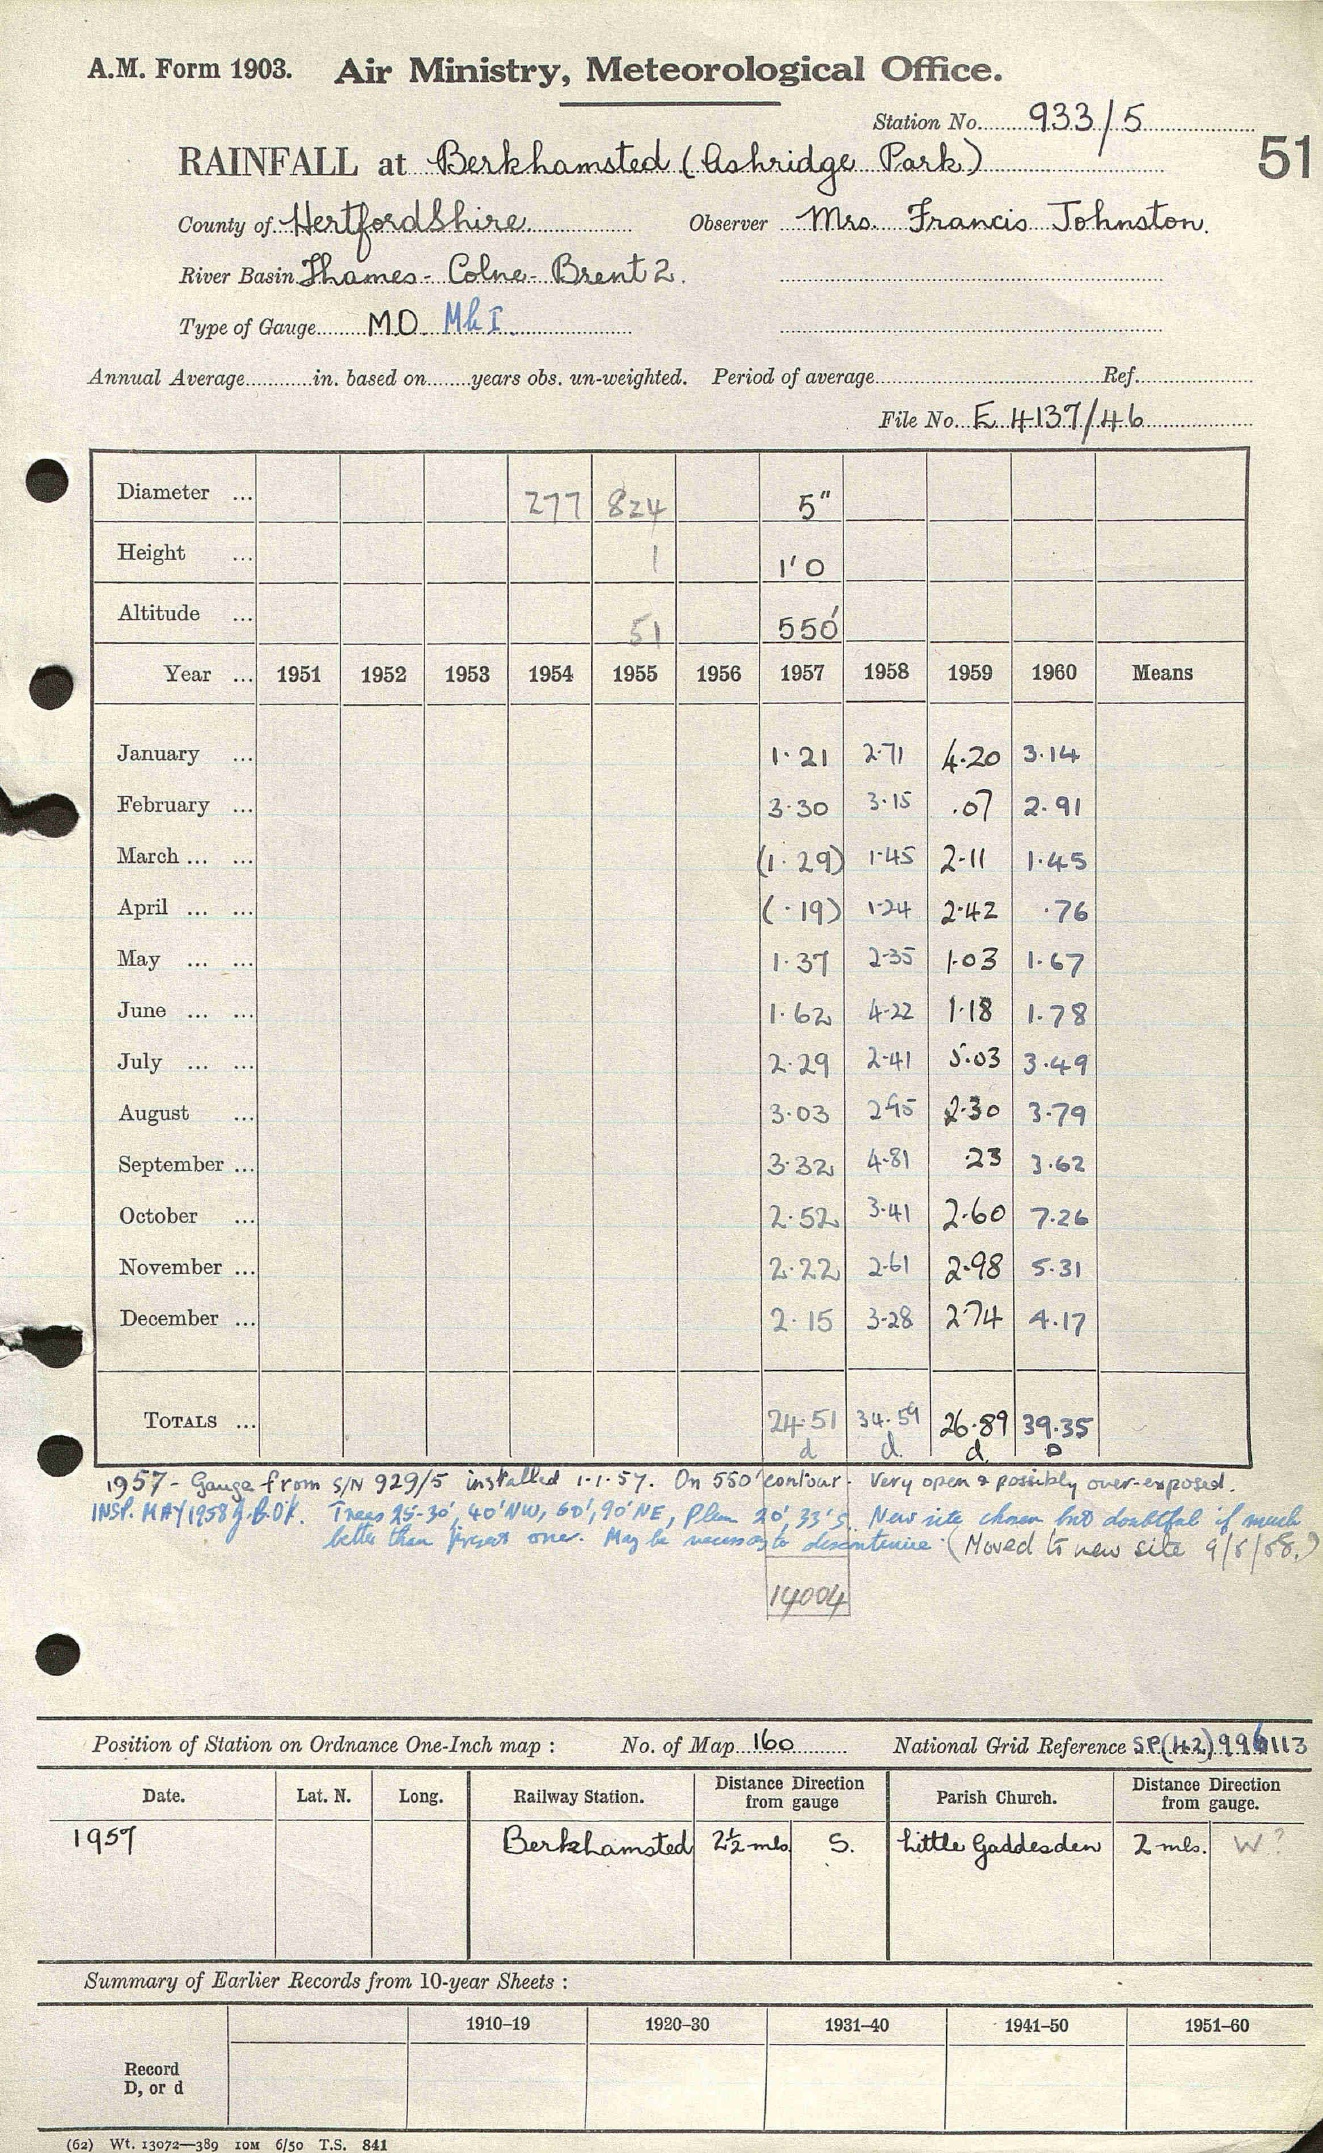 A.M. Form 1903. Air Ministry, Meteorological Office.
Station No. 933/5
51
RAINFALL at Berkhamsted (Ashridge Park)
County of Hertfordshire Observer Mrs. Francis Johnston.
River Basin Thames - Colne - Brent 2.
Type of Gauge M.O. Mk I
Annual Average in. based on years obs. un-weighted. Period of average Ref.
File No. E 4137/46
Diameter ... 277 824 5"
Height ... 1 1'0
Altitude ... 51 550'
Year ... 1951 1952 1953 1954 1955 1956 1957 1958 1959 1960 Means
January ... 1.21 2.71 4.20 3.14
February ... 3.30 3.15 .07 2.91
March ... ... (1.29) 1.45 2.11 1.45
April ... ... (.19) 1.24 2.42 .76
May ... ... 1.37 2.35 1.03 1.67
June ... ... 1.62 4.22 1.18 1.78
July ... ... 2.29 2.41 5.03 3.49
August ... 3.03 2.95 2.30 3.79
September ... 3.32 4.81 .23 3.62
October ... 2.52 3.41 2.60 7.26
November ... 2.22 2.61 2.98 5.31
December ... 2.15 3.28 2.74 4.17
TOTALS ... 24.51 34.59 26.89 39.35
d d d D
1957 - Gauge from S/N 929/5 installed 1.1.57. On 550' contour. Very open & possibly over-exposed.
INSP. MAY 1958 Trees 25-30', 40' NW, 60', 90' NE, Plum 20', 33' S. New site chosen but doubtful if much
better than present one. May be necessary to discontinue. (Moved to new site 9/5/58.)
14004
Position of Station on Ordnance One-Inch map : No. of Map 160 National Grid Reference SP(42)996113
Date. Lat. N. Long. Railway Station. Distance Direction from gauge Parish Church. Distance Direction from gauge.
1957 Berkhamsted 2½ mls S. Little Gaddesden 2 mls. W?
Summary of Earlier Records from 10-year Sheets :
1910–19 1920–30 1931–40 1941–50 1951–60
Record
D, or d
(62) Wt. 13072—389 10M 6/50 T.S. 841